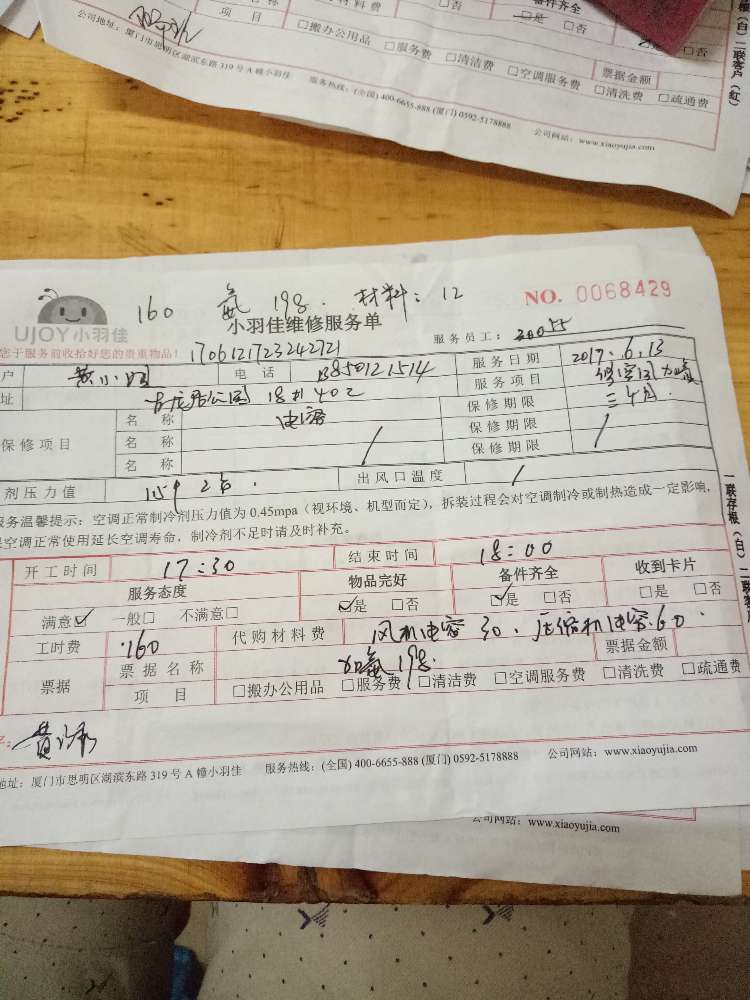 料费 □否 备件齐全 □否
项 目 □搬办公用品 □服务费 □清洁费 □空调服务费 □清洗费 □疏通费
□是 □否 票据金额
公司地址:厦门市思明区湖滨东路319号A幢小羽佳 服务热线:(全国)400-6655-888 (厦门)0592-5178888 公司网站:www.xiaoyujia.com
(白) 二联客户(红)
160 氟 198. 材料: 12
UJOY小羽佳
小羽佳维修服务单
NO. 0068429
您于服务前收拾好您的贵重物品!
1706121723242721
服务员工: 30055
户 电 话 13850121514 服务日期 2017.6.13
址 18#402 服务项目
保修项目 名 称 电容 保修期限 三个月.
名 称 / 保修期限 /
名 称 保修期限
剂压力值 出风口温度 /
服务温馨提示:空调正常制冷剂压力值为0.45mpa(视环境、机型而定),拆装过程会对空调制冷或制热造成一定影响,
空调正常使用延长空调寿命,制冷剂不足时请及时补充。
开工时间 17:30 结束时间 18:00
服务态度 物品完好 备件齐全 收到卡片
满意☑ 一般□ 不满意□ ☑是 □否 ☑是 □否 □是 □否
工时费 160 代购材料费 风机电容30、压缩机电容60.
票据 票据名称 加氟198. 票据金额
项 目 □搬办公用品 □服务费 □清洁费 □空调服务费 □清洗费 □疏通费
地址:厦门市思明区湖滨东路319号A幢小羽佳 服务热线:(全国)400-6655-888 (厦门)0592-5178888 公司网站:www.xiaoyujia.com
一联存根(白) 二联客
公司网站:www.xiaoyujia.com